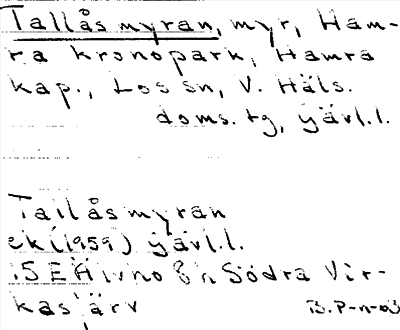 Tallåsmyran, myr, Ham-
ra kronopark, Hamra
kap., Los sn, V. Häls.
doms. tg, Gävl. l.
Tallåsmyran
ek (1959) Gävl. l.
Södra Vir-
kasjärv